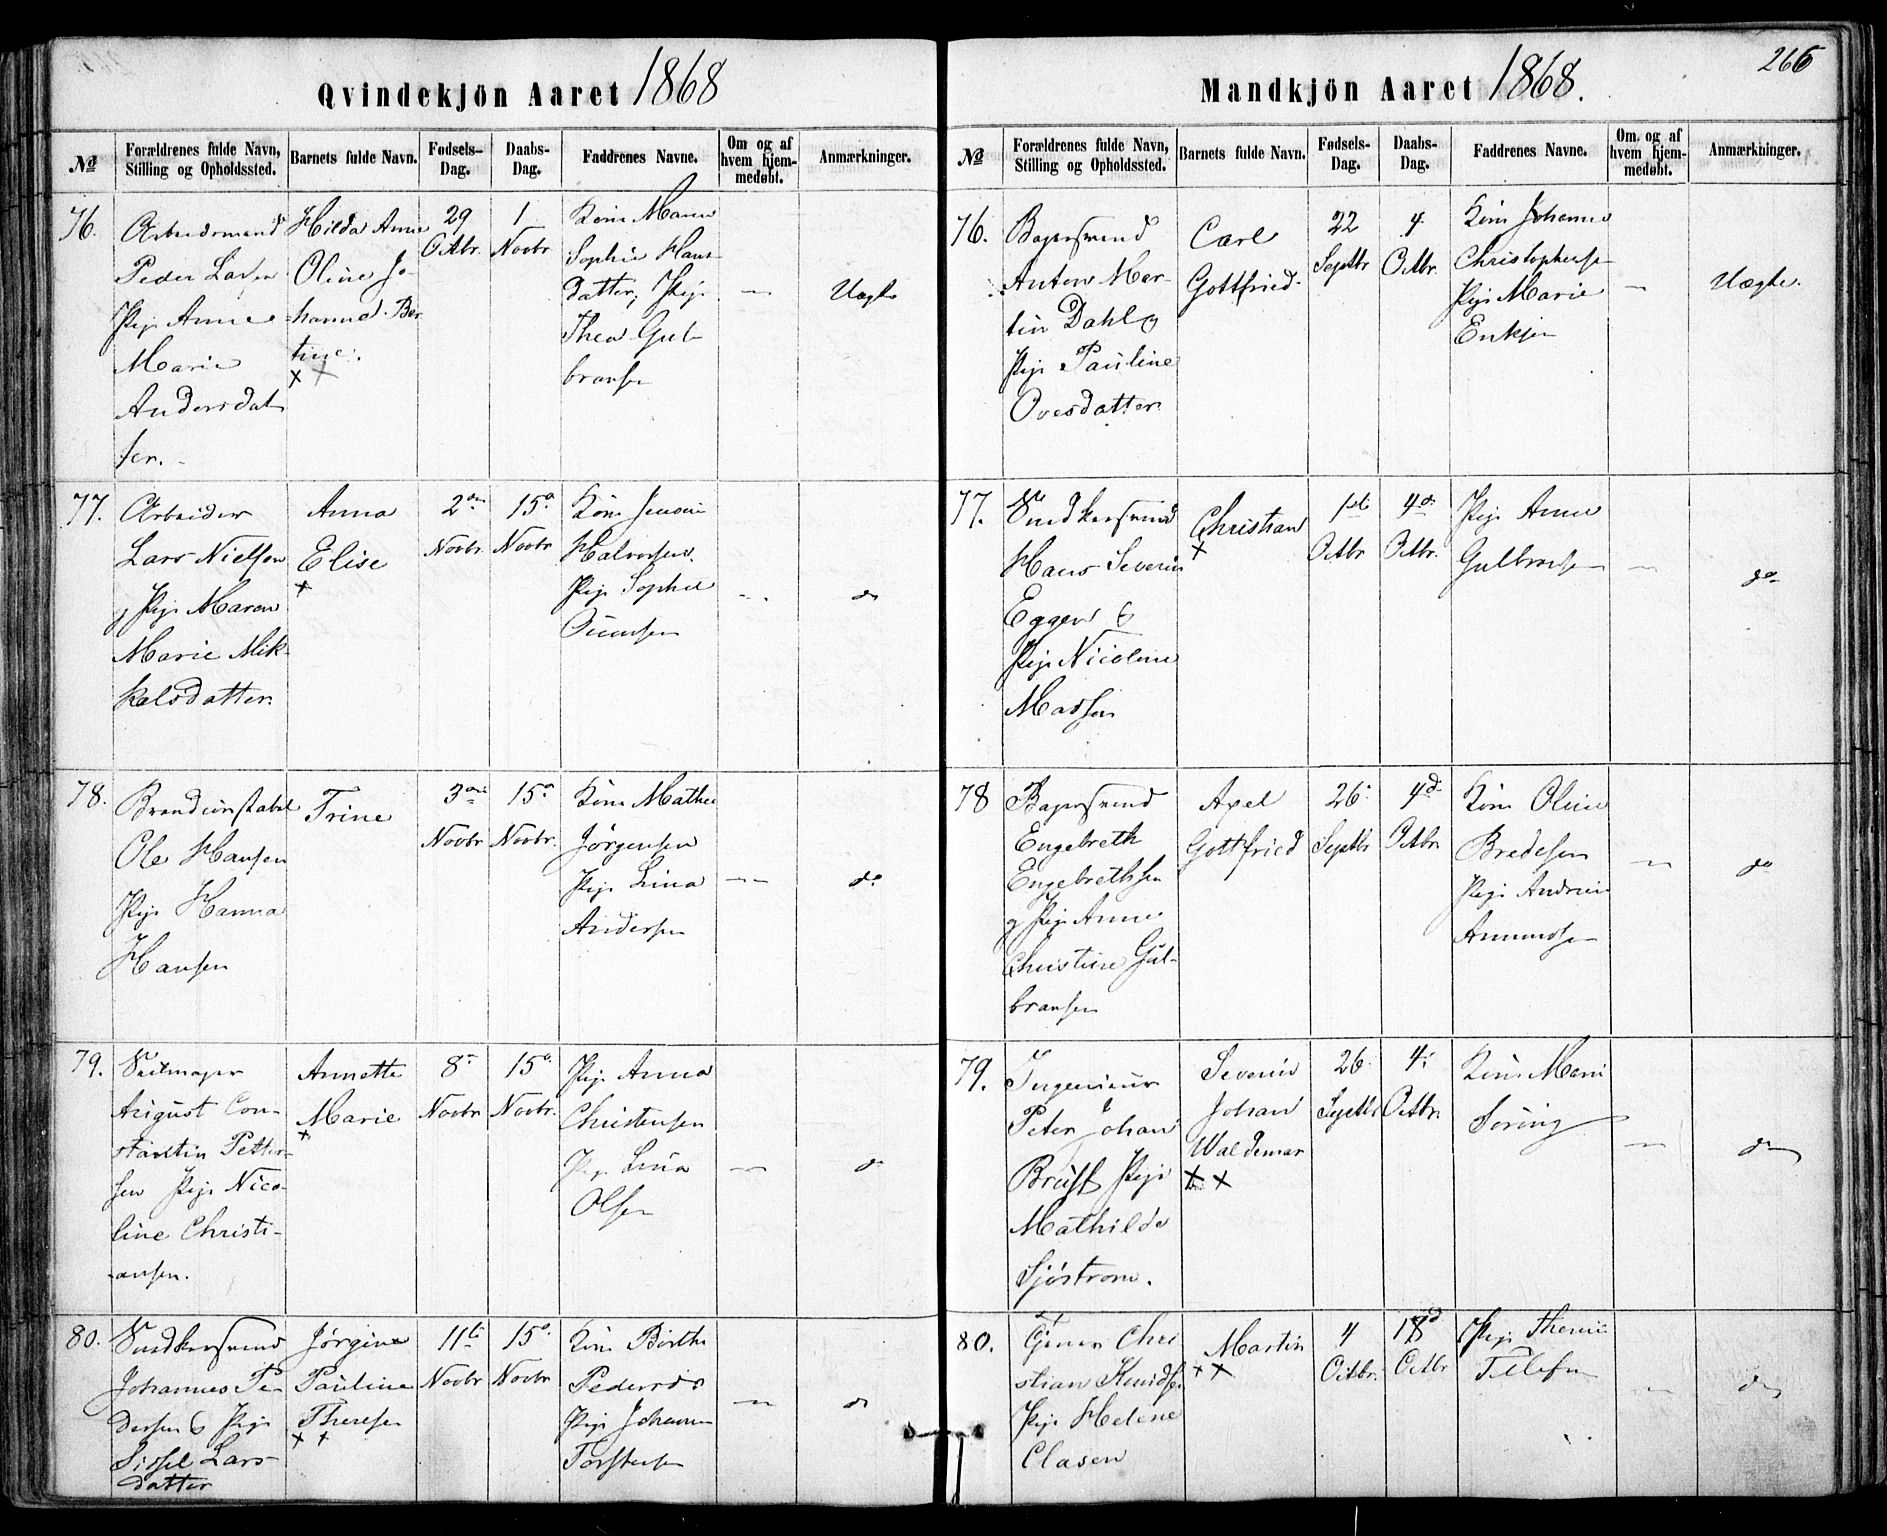 Qvindekjön Aaret 1868
No
Forældrenes fulde Navn, Stilling og Opholdssted.
Barnets fulde Navn.
Fødsels-Dag.
Daabs-Dag.
Faddrenes Navne.
Om og af hvem hjem-medøbt.
Anmærkninger.
76.
Arbeidsmand
Peder Larsen
Pige Anne
Marie
Andersdat
ter.
Hilda Anna
Oline Jo-
hanna Ber
tine.
29
Octbr.
1
Novbr
Kone Maren
Sophie Hans
datter, Pige
Thea Gul
bransen
—
Uægte
77.
Arbeider
Lars Nielsen
g Pige Maren
Marie Mik-
kelsdatter.
Anna
Elise
2
Novbr.
15
Novbr
Kone
Halvorsen.
Pige Sophie
do
78.
Brandconstabel
Ole Hansen
Pige Hanna
Hansen
Trine
3
Novbr
15
Novbr.
Kone Mathea
Jörgensen
Pige Lina
Andersen
—
do
79.
Seilmager
August Con-
stantin Petter-
sen Pige Nico-
line Christi-
ansen.
Annette
Marie
8
Novbr
15
Novbr.
Pige Anna
Christensen
Pige Lina
Olsen
—
do
80.
Snedkersvend
Johannes Pe-
dersen & Pige
Sissel Lars-
datter
Jørgine
Pauline
Therese
11
Novbr
15
Novbr
Kone Birthe
Pige Johanne
Torstensen
—
do
Mandkjön Aaret 1868.
266
No
Forældrenes fulde Navn, Stilling og Opholdssted.
Barnets fulde Navn.
Fødsels-Dag.
Daabs-Dag.
Faddrenes Navne.
Om og af hvem hjem-medøbt.
Anmærkninger.
76.
Bagersvend
Anton Mar-
tin Dahl g
Pige Pauline
Ovesdatter.
Carl
Gottfried.
22
Septbr
4
Octbr.
Kone Johanne
Christophersen
Pige Marie
—
Uægte.
77.
Snedkersvend
Hans Severin
Eggen &
Pige Nicoline
Madsen
Christian
1
Octbr
4
Octbr.
Pige Anne
Gulbransen
—
do
78
Bagersvend
Engebreth
Engebrethsen
g Pige Anne
Christine Gul-
bransen
Axel
Gottfried
26
Septbr
4
Octbr
Kone Oline
Bredesen
Pige Andrine
Amundsen
—
do
79.
Ingenieur
Peter Johan
Pige
Mathilde
Sjöstrom.
Severin
Johan
Waldemar
26
Septbr
4
Octbr.
Kone Marie
—
do
80.
Tjener Chri
stian Knudsen
Pige Helene
Clasen
Martin
4
Octbr.
18
Octbr
Pige
Tellefsen
—
do